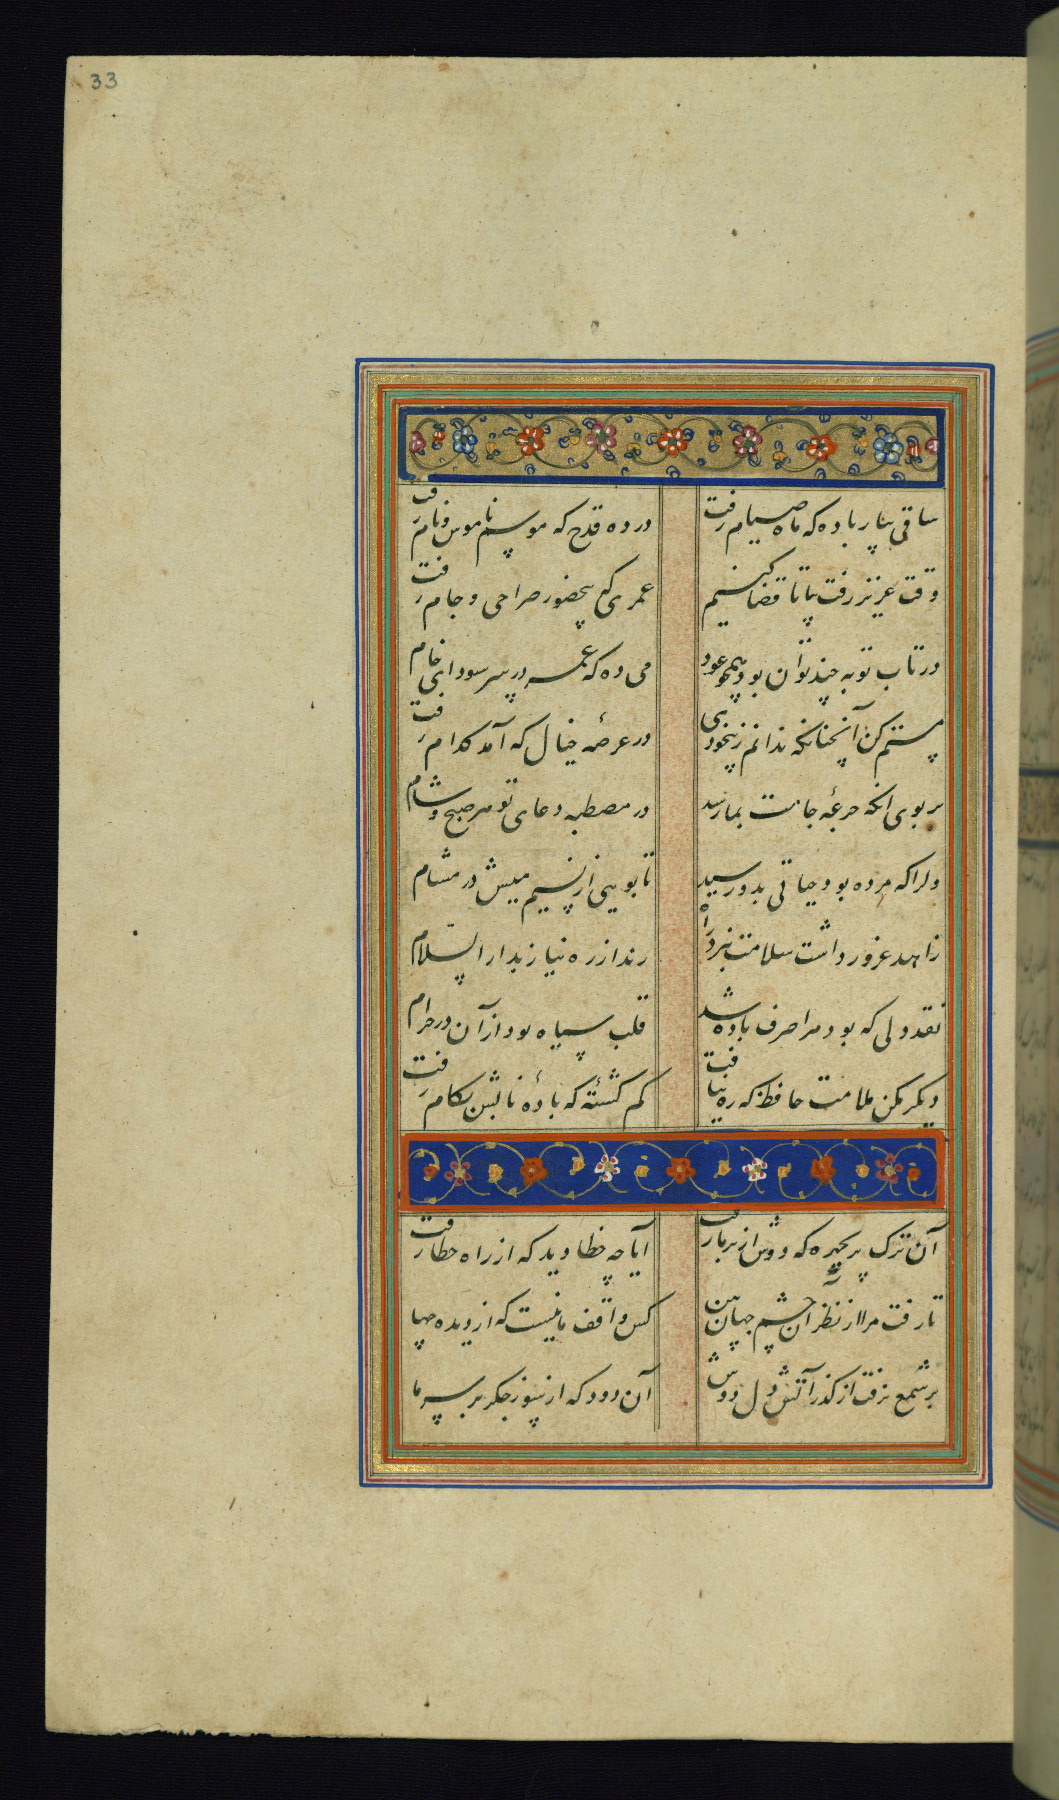 33
ساقی بیار باده که ماه صیام رفت
در ده قدح که موسم ناموس و نام رفت
وقت عزیز رفت بیا تا قضا کنیم
عمری که بی حضور صراحی و جام رفت
در تاب توبه چند توان بود همچو عود
می ده که عمر در سر سودای خام رفت
مستم کن آنچنانکه ندانم ز بیخودی
در عرصه خیال که آمد کدام رفت
بر بوی انکه جرعه جامت بما رسد
در مصطبه دعای تو هر صبح و شام
دلرا که مرده بود حیاتی بدو رسید
تا بویی از نسیم میش در مشام
زاهد غرور داشت سلامت نبرد راه
رند از ره نیاز بدار السلام
نقد دلی که بود مرا صرف باده شد
قلب سیاه بود از آن در حرام
دیگر مکن ملامت حافظ که ره نیافت
کم گشته که بادهٔ نابش بکام رفت
آن ترک پریچهره که دوش از بر ما رفت
آیا چه خطا دید که از راه خطا رفت
تا رفت مرا از نظر آن چشم جهان بین
کس واقف ما نیست که از دیده چها
بر شمع نرفت از گذر آتش دل دوش
آن دود که از سوز جگر بر سر ما